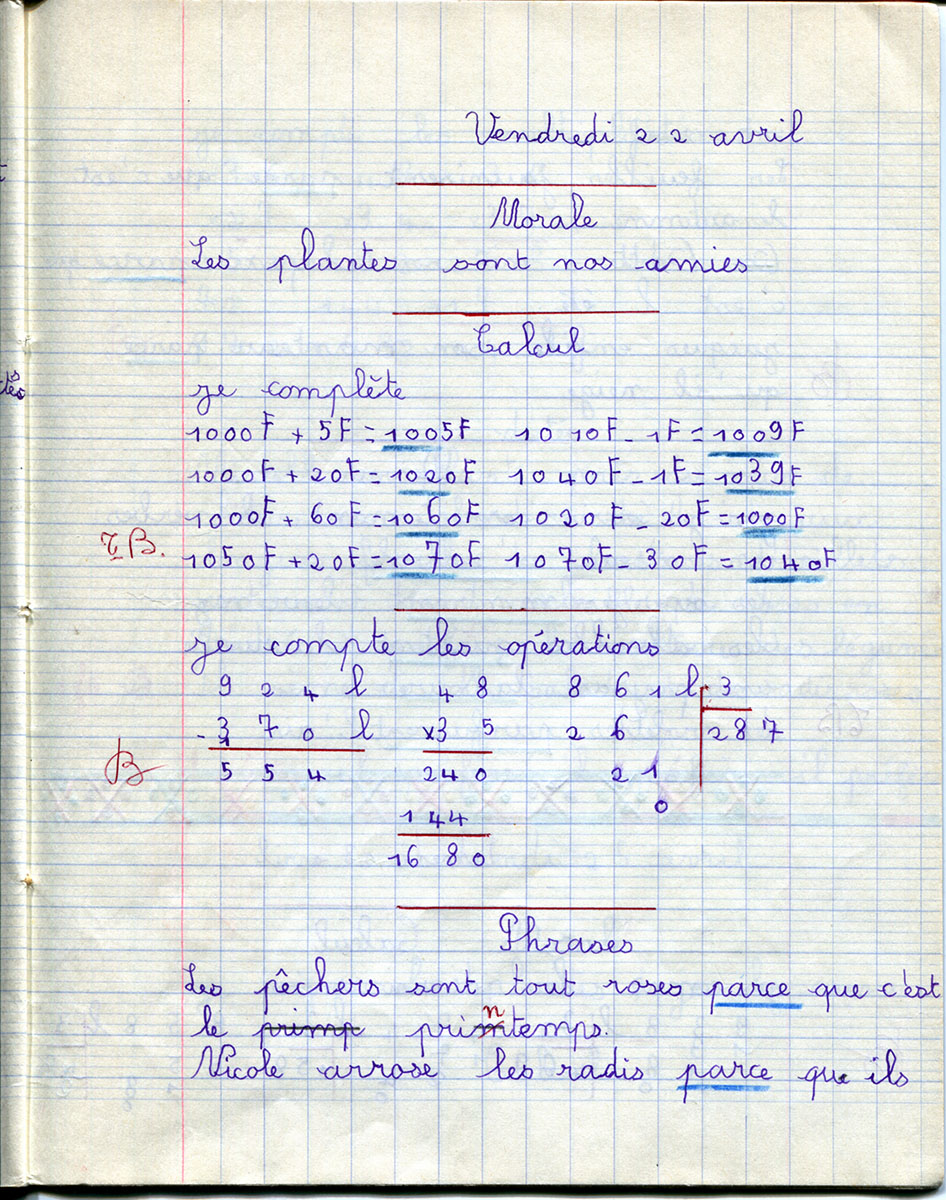 Vendredi 22 avril
Morale
Les plantes sont nos amies
Calcul
je complète
1000F + 5F = 1005F 1010F - 1F = 1009F
1000F + 20F = 1020F 1040F - 1F = 1039F
1000F + 60F = 1060F 1020F - 20F = 1000F
TB. 1050F + 20F = 1070F 1070F - 30F = 1040F
je compte les opérations
924 l 48 861 l 3
- 370 l x35 26 287
B 554 240 21
0
144
1680
Phrases
Les pêchers sont tout roses parce que c'est
le primp printemps.
Nicole arrose les radis parce que ils